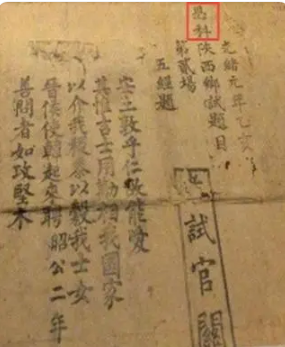 光緒元年乙亥
恩科陝西鄉試題目
第貳場
五經題
安土敦乎仁故能愛
其惟吉士用勱相我國家
以介我稷黍以穀我士女
晉侯使韓起來聘昭公二年
善問者如攻堅木
試官關